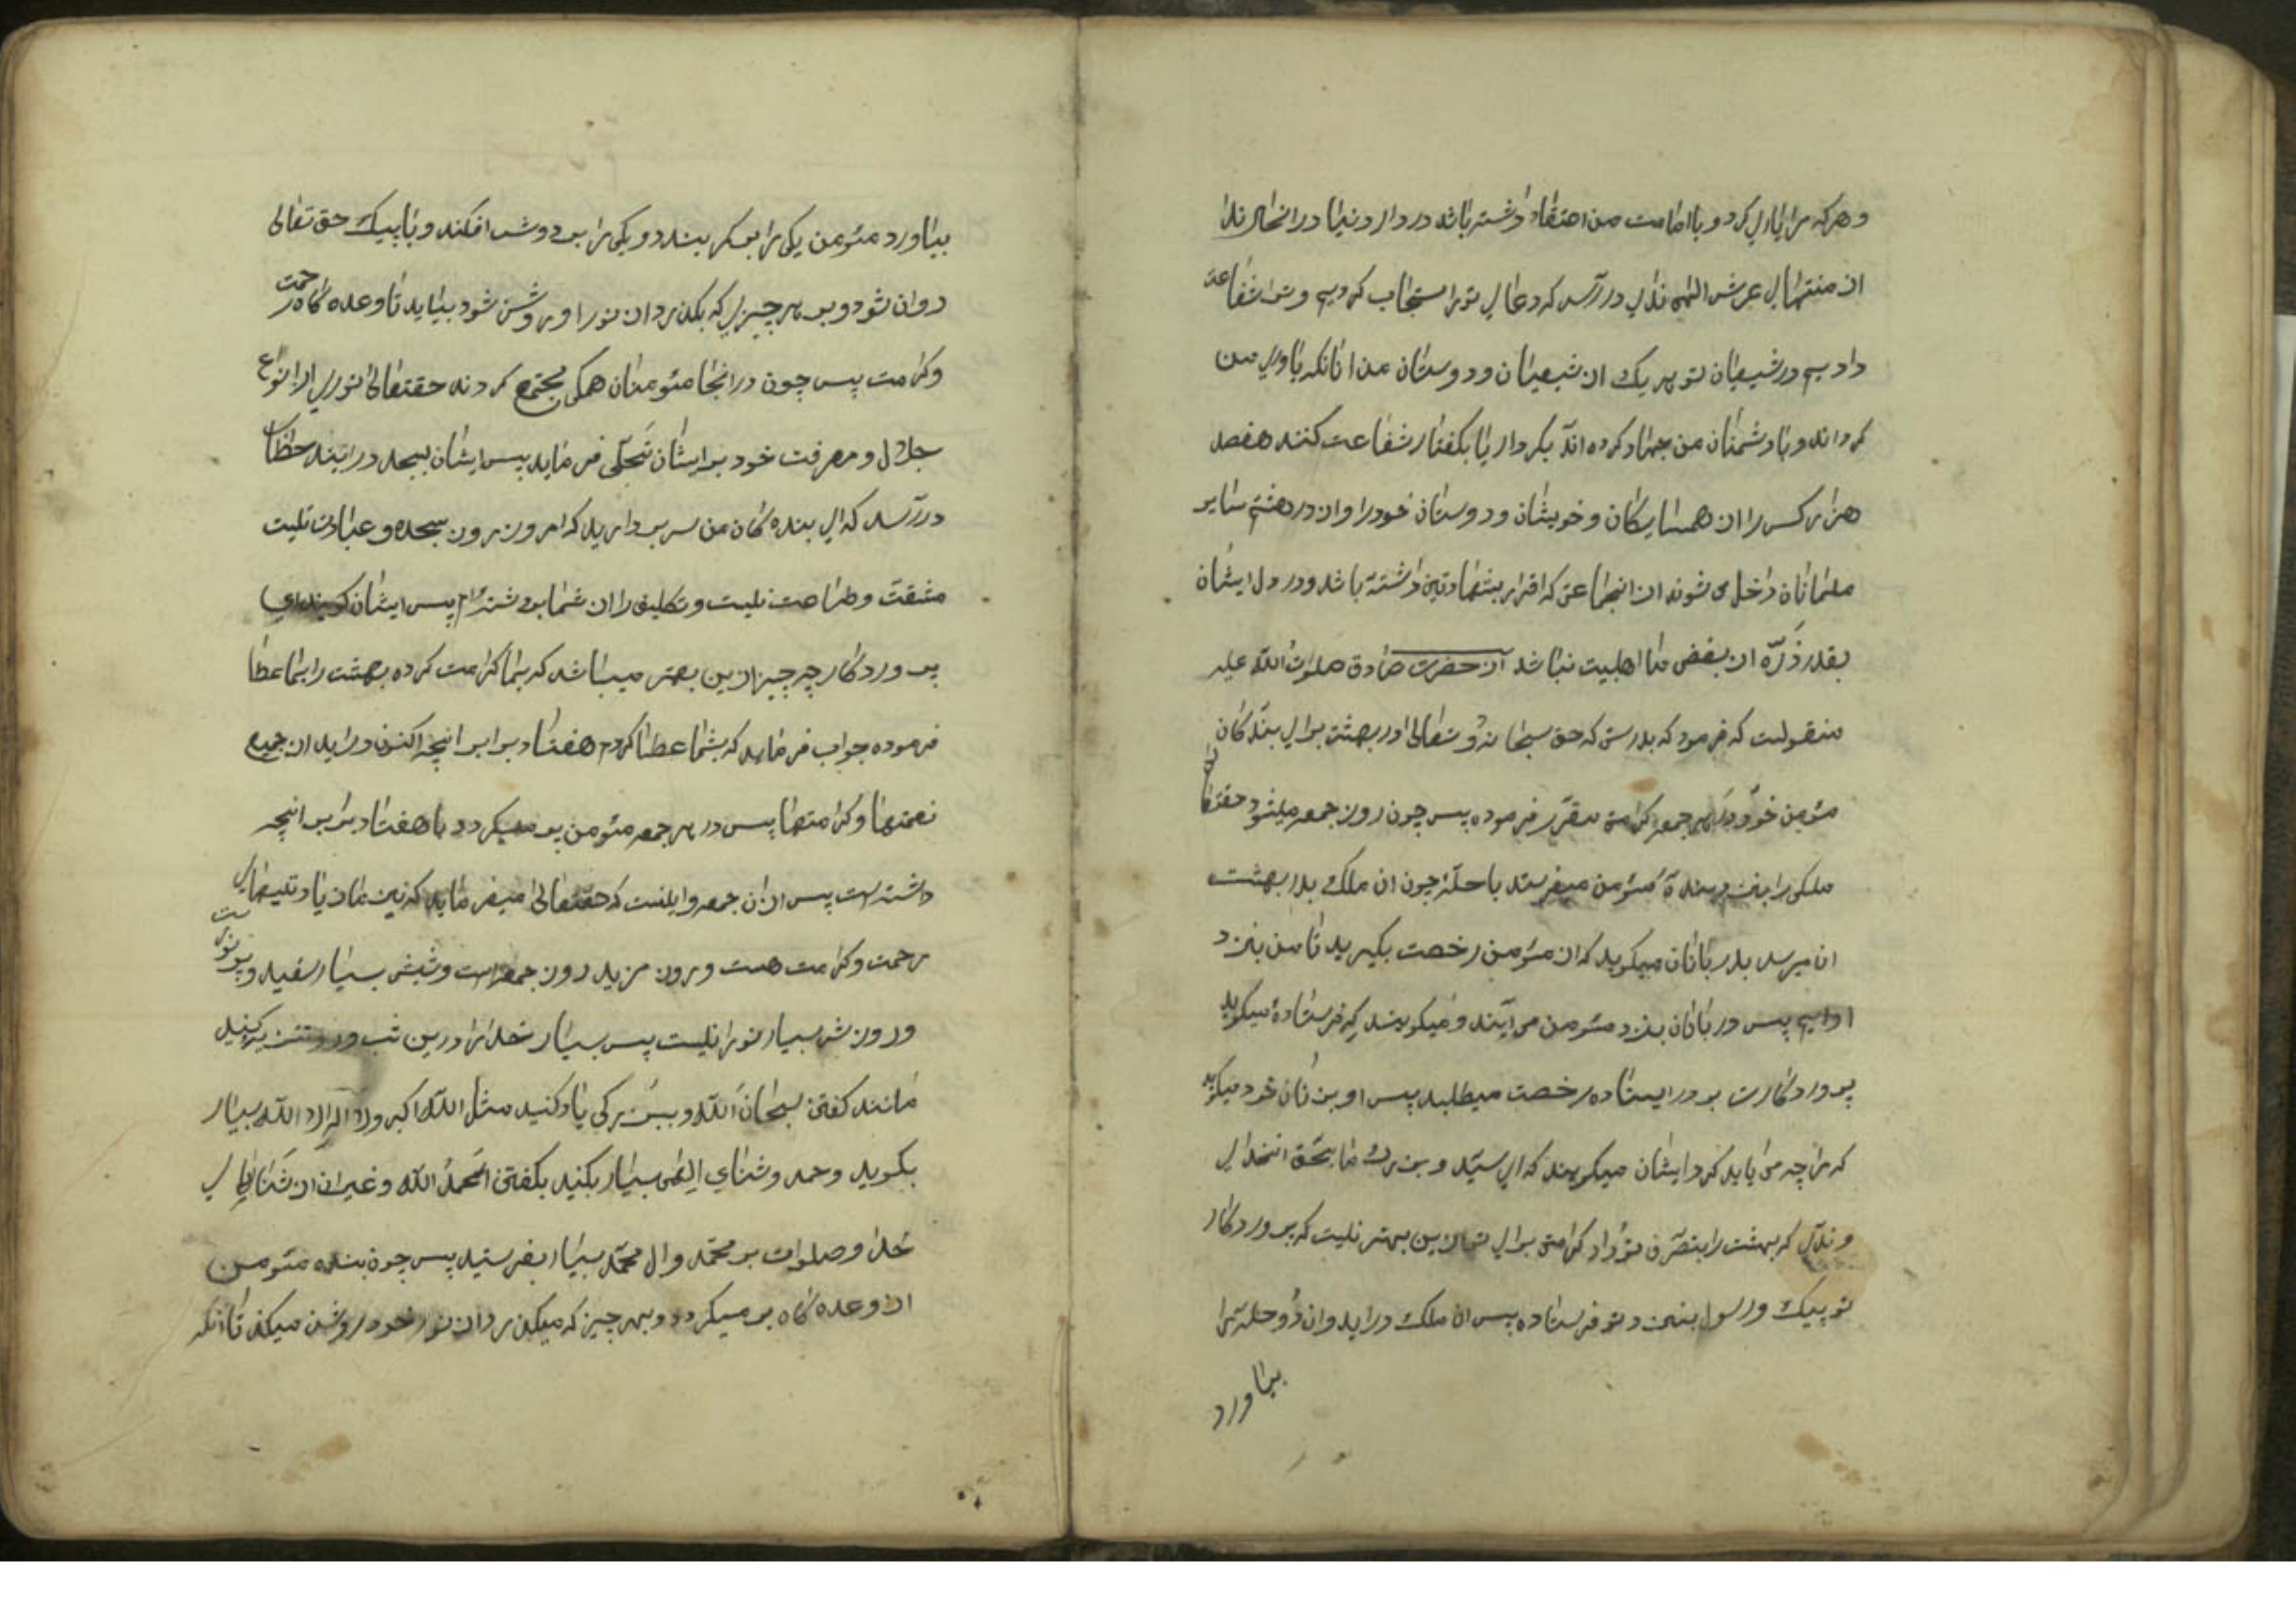 وهرکه مرا یاری کرد و باامامت من اعتقاد داشته باشد در دار دنیا درانحال ندا
از منتهای عرش الهی ندای دررسد که دعای تورا مستجاب کردیم و ترا شفاعة
دادیم در شیعیان تو هر یک از شیعیان ودوستان من انانکه یاوری من
کرداند و با دشمنان من جهاد کرده اند بکردار یا بکفتار شفاعت کنند هفصد
هزار کس را از همسایکان و خویشان ودوستان خودرا واز در هشتم سایر
مسلمانان داخل می شوند از انجماعتی که اقرار بشهادتین داشتة باشد ودر دل ایشان
بقدر ذَرّه از بغض ما اهلبیت نباشد از حضرت صادق صلوات اللّه علیه
منقولست که فرمود که بدرستی که حق سبحانه وُ تعالی در بهشت برای بندکان
مئومن خود در هر جمعه کرامتی مقرّر فرموده پس چون روز جمعه میشود حقتعالی
ملکی را بنزد بندهٔ مئومن میفرستد با حلّهٔ چون ان ملک بدر بهشت
ان میرسد بدربانان میکوید که از مئومن رخصت بکیرید تا من بنزد
او ایم پس دربانان بنزد مئومن می آیند و میکویند که فرستادهٔ میکوید
پروردکارت بر در ایستاده رخصت میطلبد پس او بزنان خود میکوید
که مرا چه می باید کرد ایشان میکویند که ای سیّد و بزرک ما بحَقّ انخدای
وندی که بهشت را بتصرّف تو داد کرامتی برای تو ازین بهتر نیست که پروردکار
تو پیک و رسول بنزد تو فرستاده پس ان ملک دراید وان دُو حلّه را
بیاورد
بیاورد مئومن یکی را بر کمر بندد و یکی را بر دوش افکند و با پیک حق تعالی
روان شود و بر هر چیزی که بکذرد از نور او روشن شود بیاید تا وعده کاه رحمت
وکرامت پس چون درانجا مئومنان همکی مجتمع کردند حقتعالی نوری از انواع
جلال و معرفت خود بر ایشان تَجَلّی فرماید پس ایشان بسجده درایند خطاب
دررسد که ای بنده کان من سر بردارید که امروز روز سجده و عبادت نیست
مشقّت وطاعت نیست و تکلیف را از شما برداشته ام پس ایشان کویند ای
پروردکار چه چیز ازین بهتر میباشد که بما کرامت کرده بهشت را بما عطا
فرموده جواب فرماید که بشما عطا کردم هفتاد برابر انچه اکنون دارید از جمیع
نعمتها و کرامتها پس در هر جمعه مئومن بر میکردد با هفتاد برابر انچه
داشته است پس از ان جمعه و اینست که حقتعالی میفرماید که
رحمت و کرامت هست و روز مزید روز جمعه است و شبش بسیار سفید و پر نورست
وروزش بسیار نورانیست پس بسیار خدا را درین شب و روز تنزیه کنید
مانند کفتن سبحانَ اللّه و ببزرکی یاد کنید مثل اللّه اکبر ولا اله الا اللّه بسیار
بکوید وحمد وثنای الهی بسیار بکنید بکفتن الحمدُ اللّه و غیر ان از ثنا های
خدا و صلوات بر محمّد وال محمّد بسیار بفرستید پس چون بنده مئومن
از وعده کاه بر میکردد و بهر چیز که میکذرد از نور خود روشن میکند تا انکه